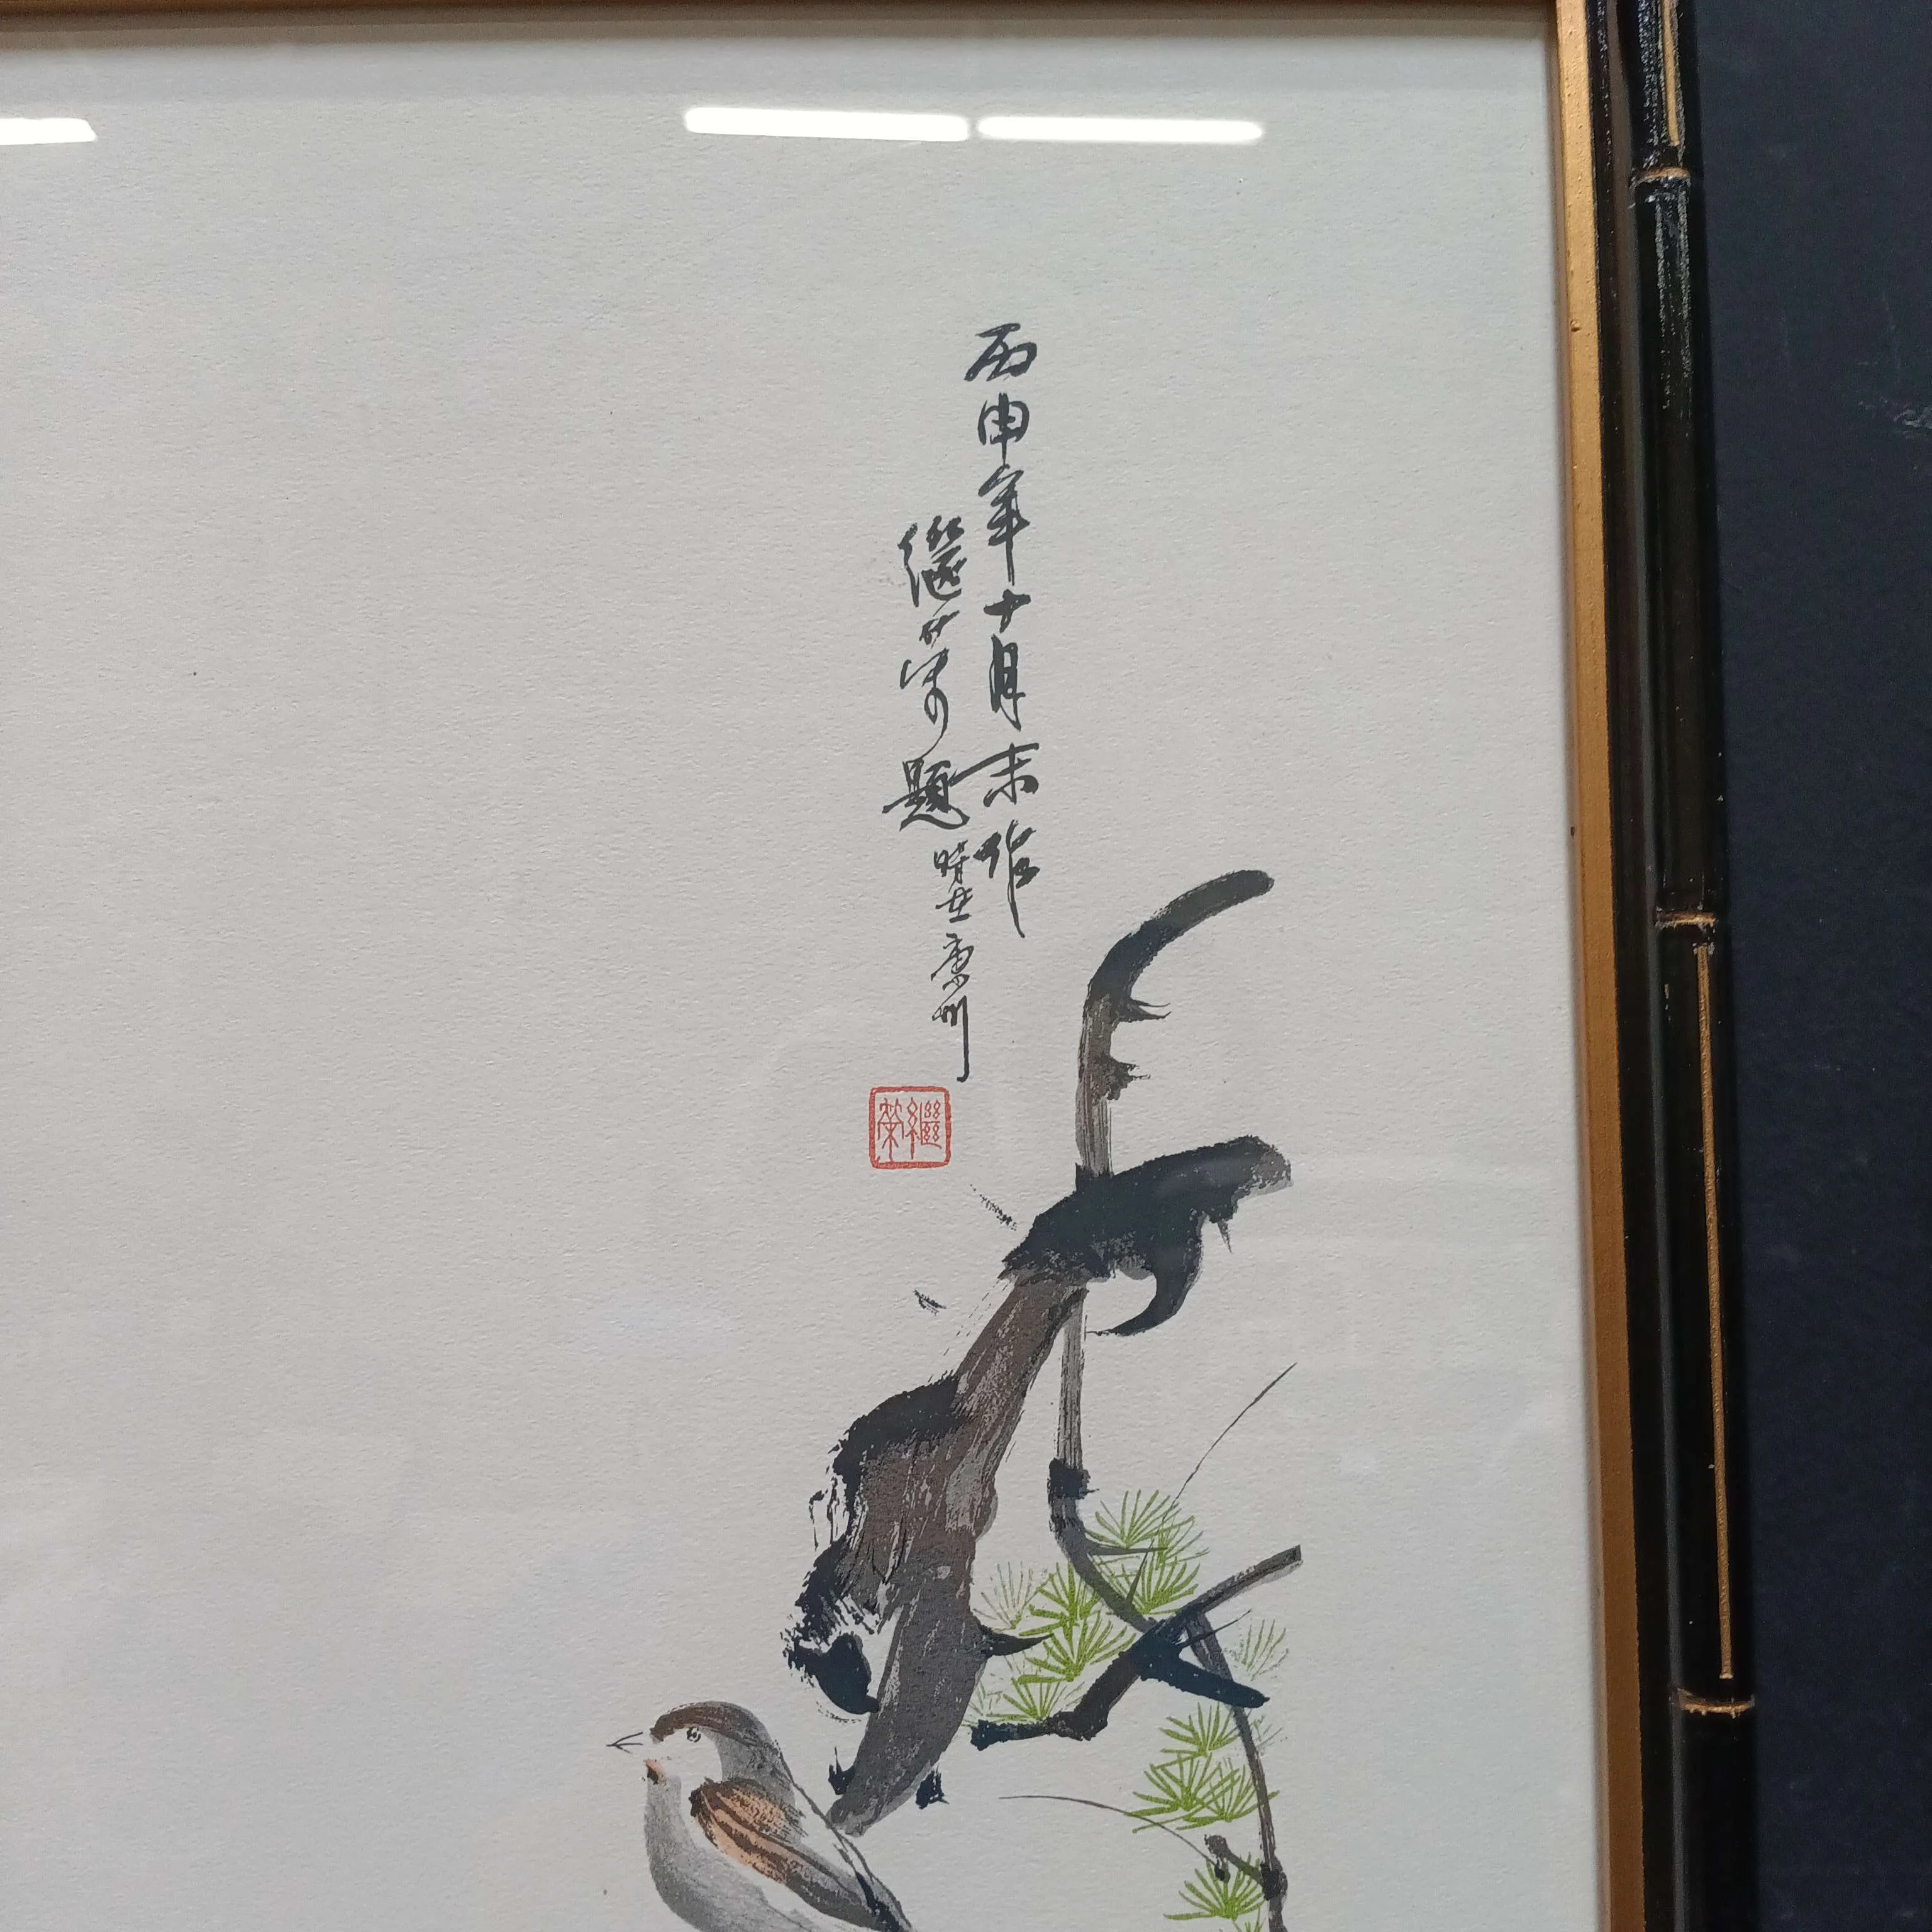 丙申年十月末作
繼荣題時在廣州
繼荣